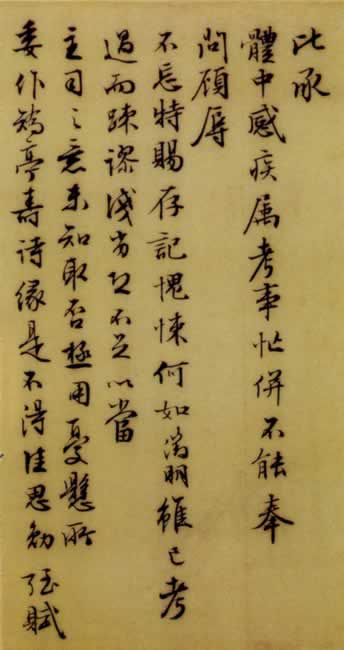 比承
體中感疾属考事忙併不能奉
問顾辱
不忘特賜存記愧悚何如明雖已考
過而疎謬淺劣恐不足以當
主司之意未知取否極用憂懸所
委作鶴亭壽詩緣是不得佳思勉强賦